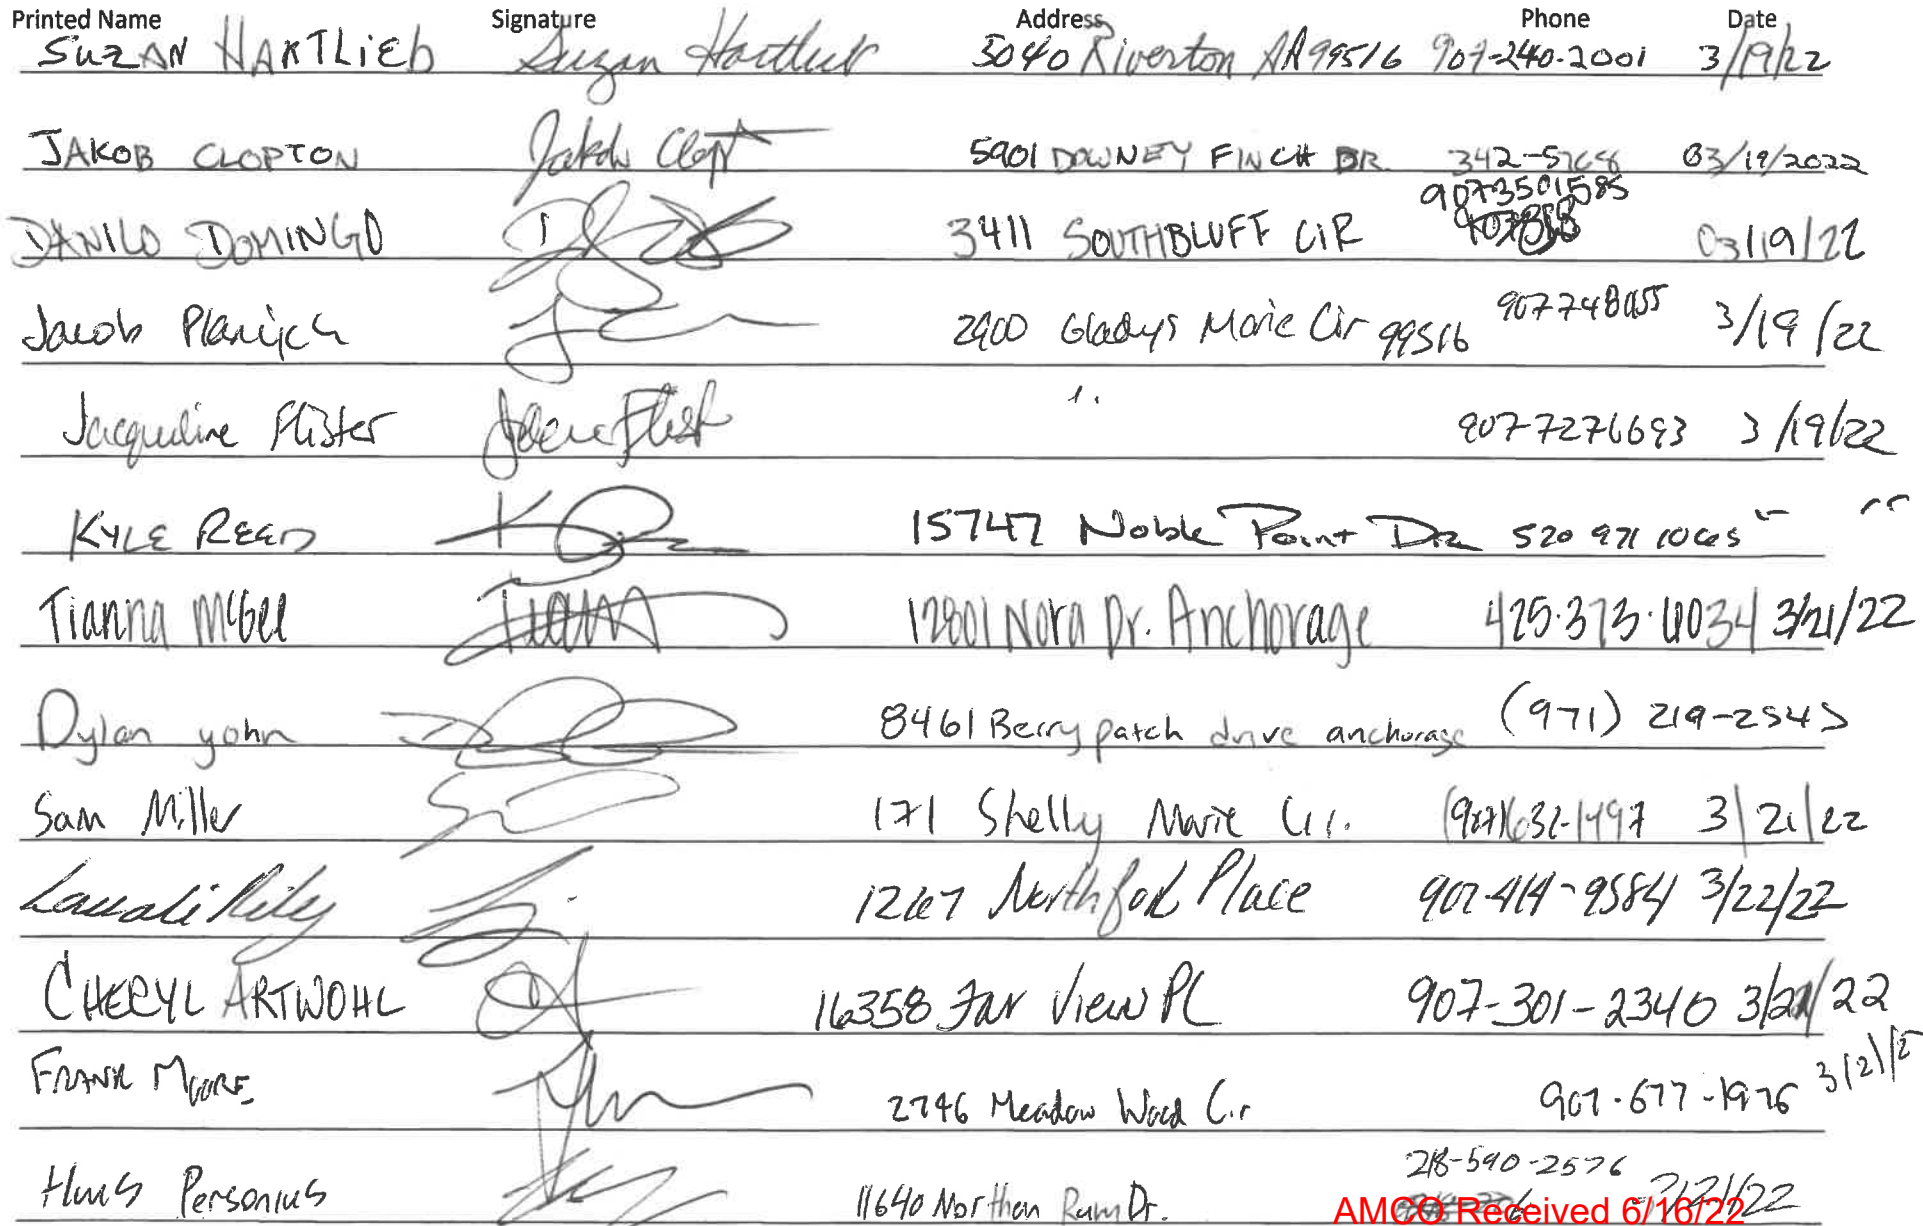 Printed Name Signature Address Phone Date
SUZAN HARTLIEB Suzan Hartlieb 5040 Riverton AA 99516 907-240-2001 3/19/22
JAKOB CLOPTON Jakob Clopt 5901 DOWNEY FINCH DR. 342-5768 03/19/2022
9073501585
DANILO DOMINGO 3411 SOUTHBLUFF CIR 03/19/22
Jacob 2900 Gladys Marie Cir 99516 3/19/22
Jacqueline Flister 907-7276693 3/19/22
KYLE REED 15747 Noble Point Dr 520 971 " "
Tianna McGee 12801 Nora Dr. Anchorage 425.373.4034 3/21/22
Dylan yohn 8461 Berry patch drive anchorage (971) 219-2545
Sam Miller 171 Shelly Marie Cir. (907)632-1497 3/21/22
Riley 1267 Northfork Place 907-414-9584 3/22/22
CHERYL ARTWOHL 16358 Far View Pl 907-301-2340 3/21/22
FRANK MOORE 2746 Meadow Wood Cir 907-677-1976
218-590-2576
Personius 11640 Dr.
AMCO Received 6/16/22